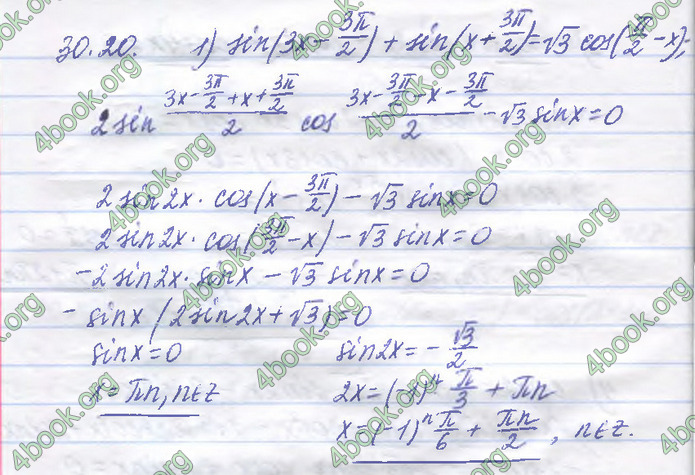 30.20. 1) sin(3x - 3π/2) + sin(x + 3π/2) = √3 cos(π/2 - x);
2 sin (3x - 3π/2 + x + 3π/2)/2 cos (3x - 3π/2 - x - 3π/2)/2 - √3 sinx = 0
2 sin 2x · cos(x - 3π/2) - √3 sinx = 0
2 sin 2x · cos(3π/2 - x) - √3 sinx = 0
-2 sin 2x · sinx - √3 sinx = 0
- sinx (2 sin 2x + √3) = 0
sinx = 0 sin 2x = - √3/2
x = πn, n∈Z 2x = (-1)ⁿ⁺ π/3 + πn
x = (-1)ⁿ π/6 + πn/2, n∈Z.
4book.org